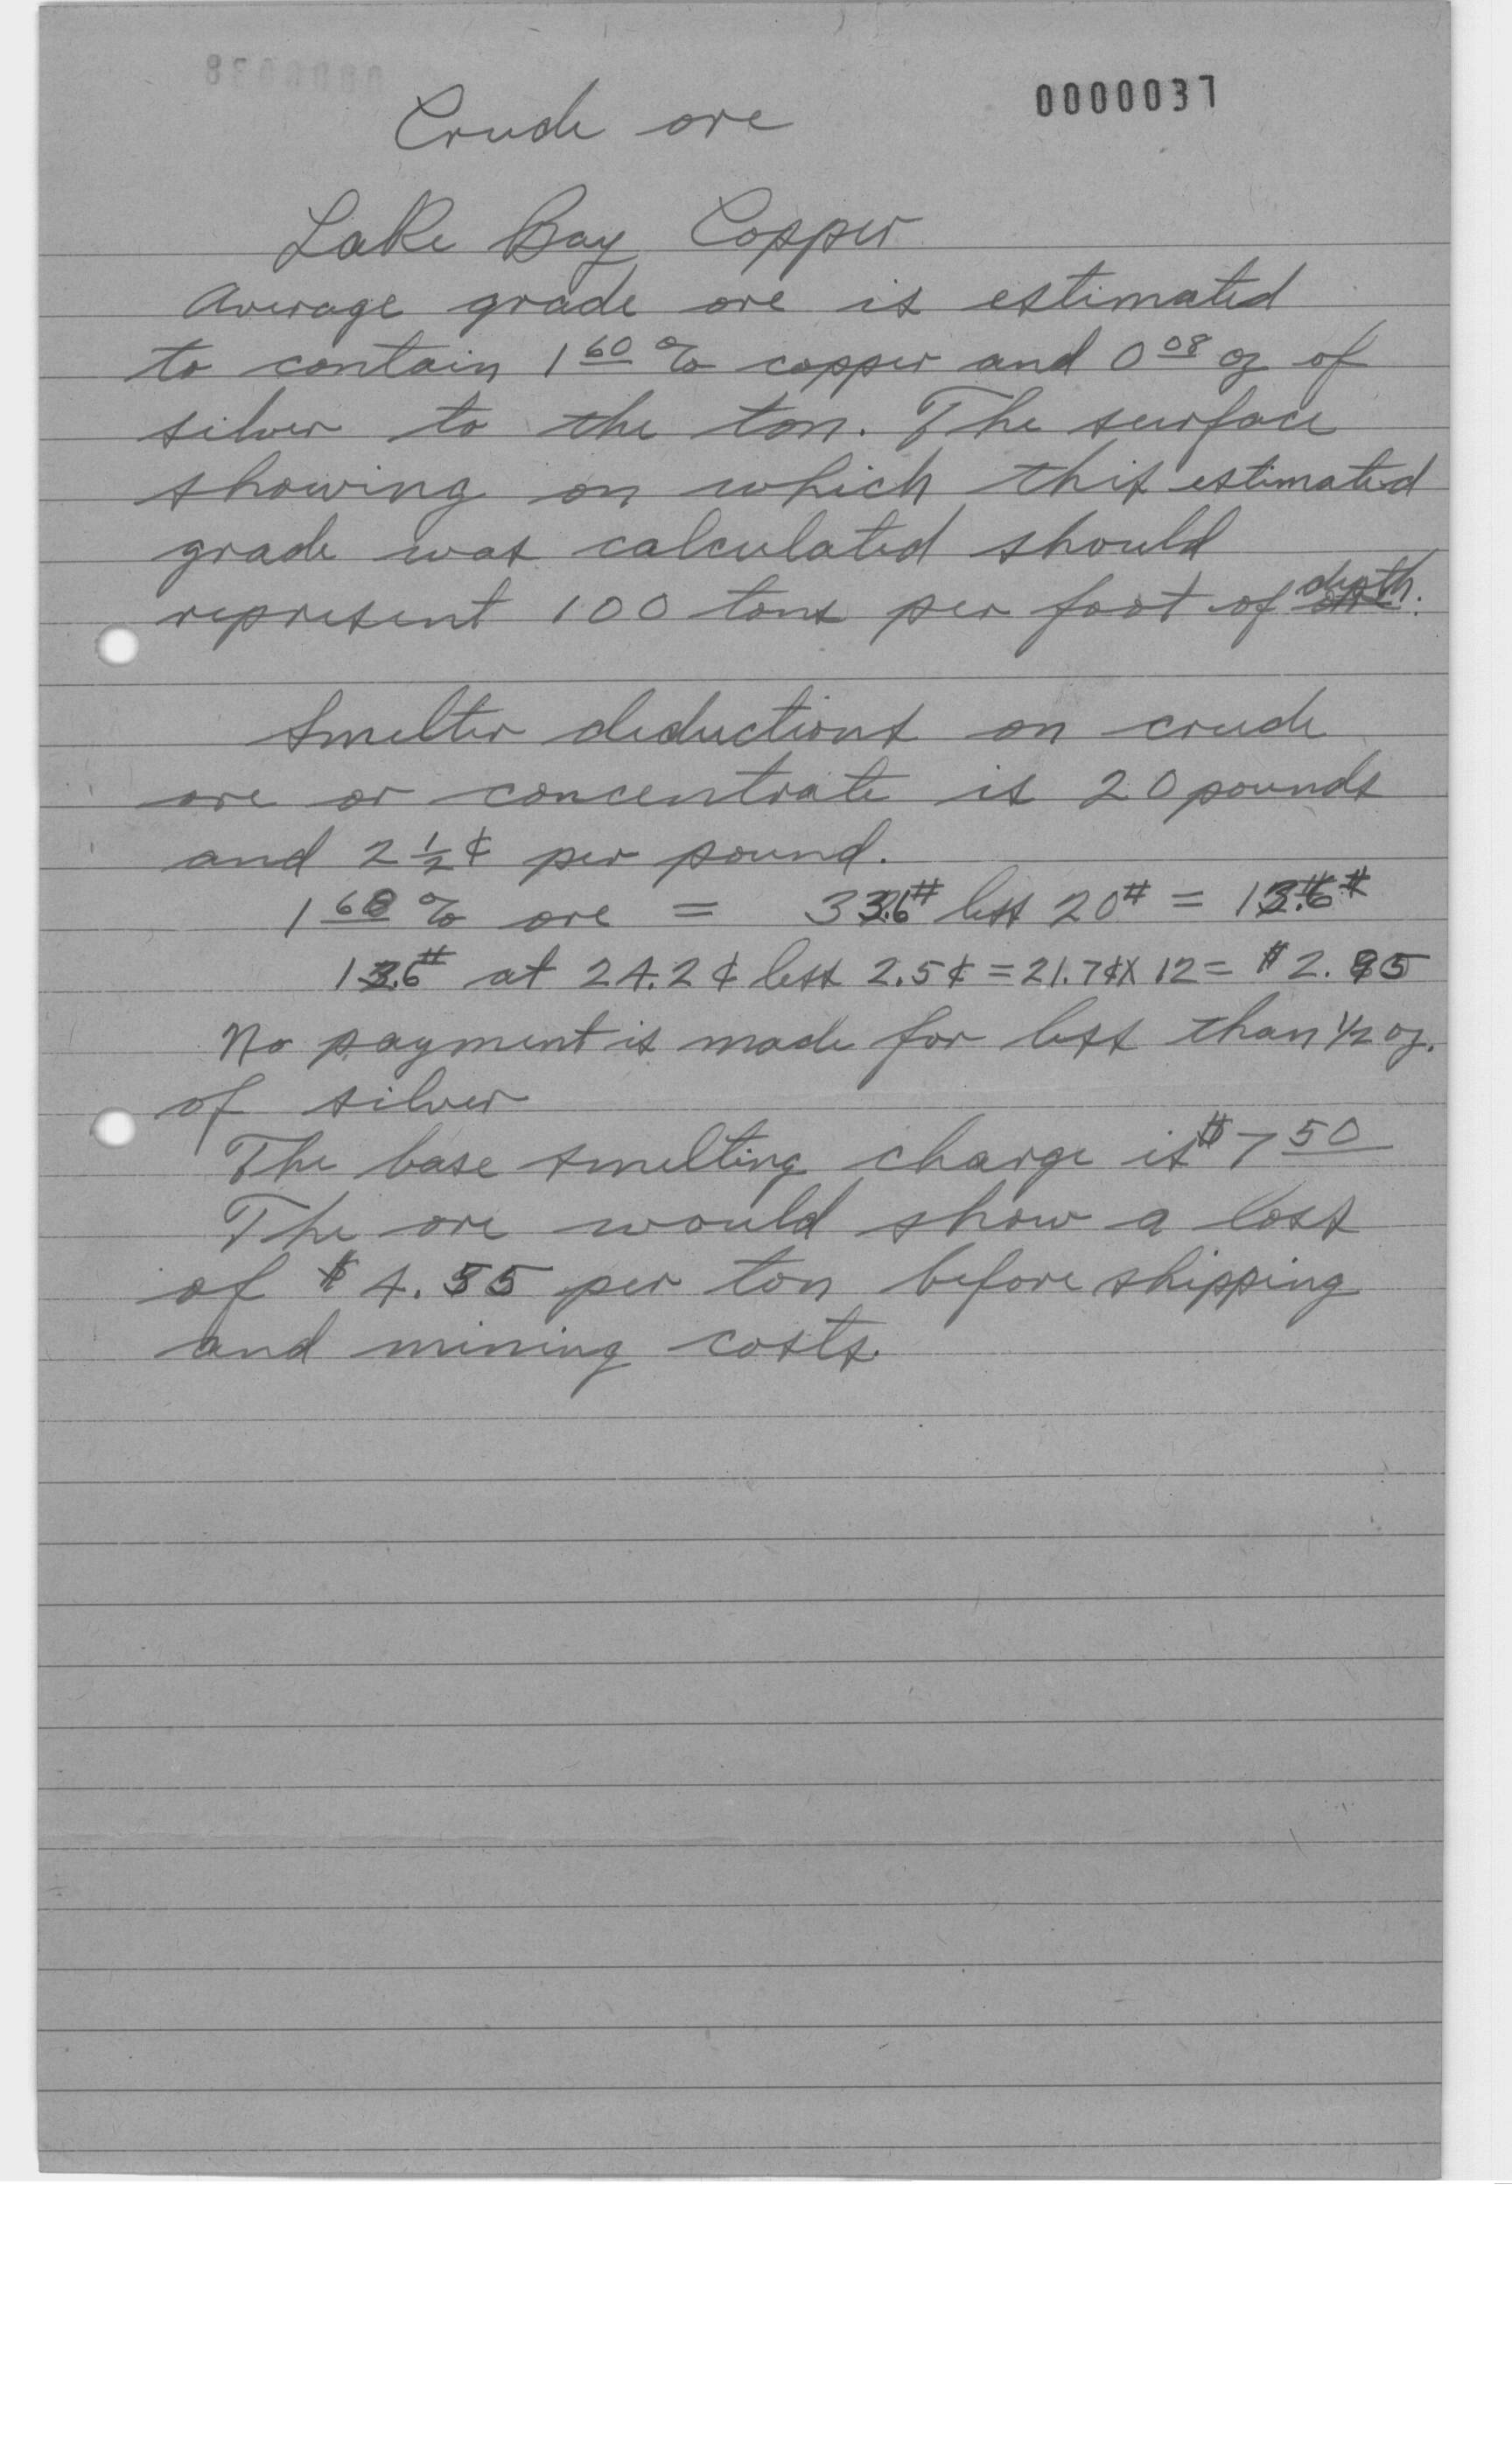 0000037
Crude ore
Lake Bay Copper
Average grade ore is estimated
to contain 1 60 % copper and 0 08 oz of
silver to the ton. The surface
showing on which this estimated
grade was calculated should
represent 100 tons per foot of depth.
Smelter deductions on crude
ore or concentrate is 20 pounds
and 2 ½ ¢ per pound.
1 68 % ore = 33.6# less 20# = 13.6#
13.6# at 24.2¢ less 2.5¢ = 21.7¢ X 12 = $2.95
No payment is made for less than ½ oz.
of silver
The base smelting charge is $7 50
The ore would show a loss
of $4.55 per ton before shipping
and mining costs.